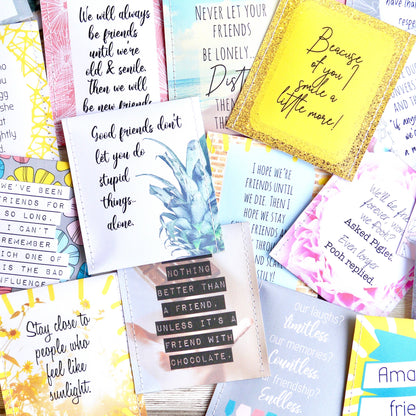 We will always
be friends
until we're
old & senile.
Then we will
be new friends
Never let your
friends
be lonely...
THEM
Beacuse
of you I
smile a
little more!
Good friends don't
let you do
stupid
things-
alone.
WE'VE SEEN
FRIENDS FOR
SO LONG,
I CAN'T
REMEMBER
WHICH ONE OF
US IS THE BAD
INFLUENCE
I HOPE WE'RE
FRIENDS UNTIL
WE DIE. THEN I
HOPE WE STAY
We'll be
forever,
Asked Piglet.
Even longer
Pooh replied.
NOTHING
BETTER THAN
A FRIEND,
UNLESS IT'S A
FRIEND WITH
CHOCOLATE.
Stay close to
people who
feel like
sunlight.
our laughs?
limitless.
our memories?
Countless.
our friendship?
Endless.
Ama
frien